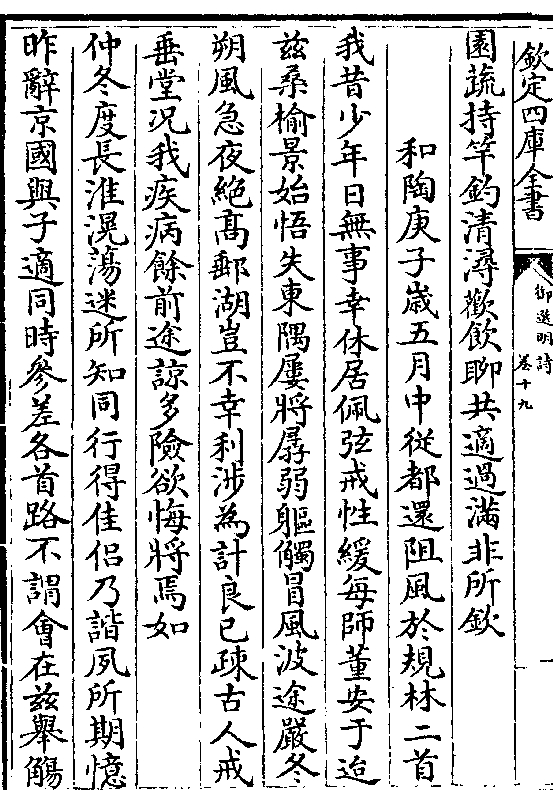 欽定四庫全書
御選明詩
卷十九
園蔬持竿釣清潯歡飲聊共適過滿非所欽
和陶庚子歲五月中從都還阻風於規林二首
我昔少年日無事幸休居佩弦戒性緩每師董安于迨
兹桑榆景始悟失東隅屢將孱弱軀觸冒風波途嚴冬
朔風急夜絶髙郵湖豈不幸利涉為計良已疎古人戒
垂堂况我疾病餘前途諒多險欲悔將焉如
仲冬度長淮滉蕩迷所知同行得佳侣乃諧夙所期憶
昨辭京國與子適同時參差各首路不謂會在兹舉觴